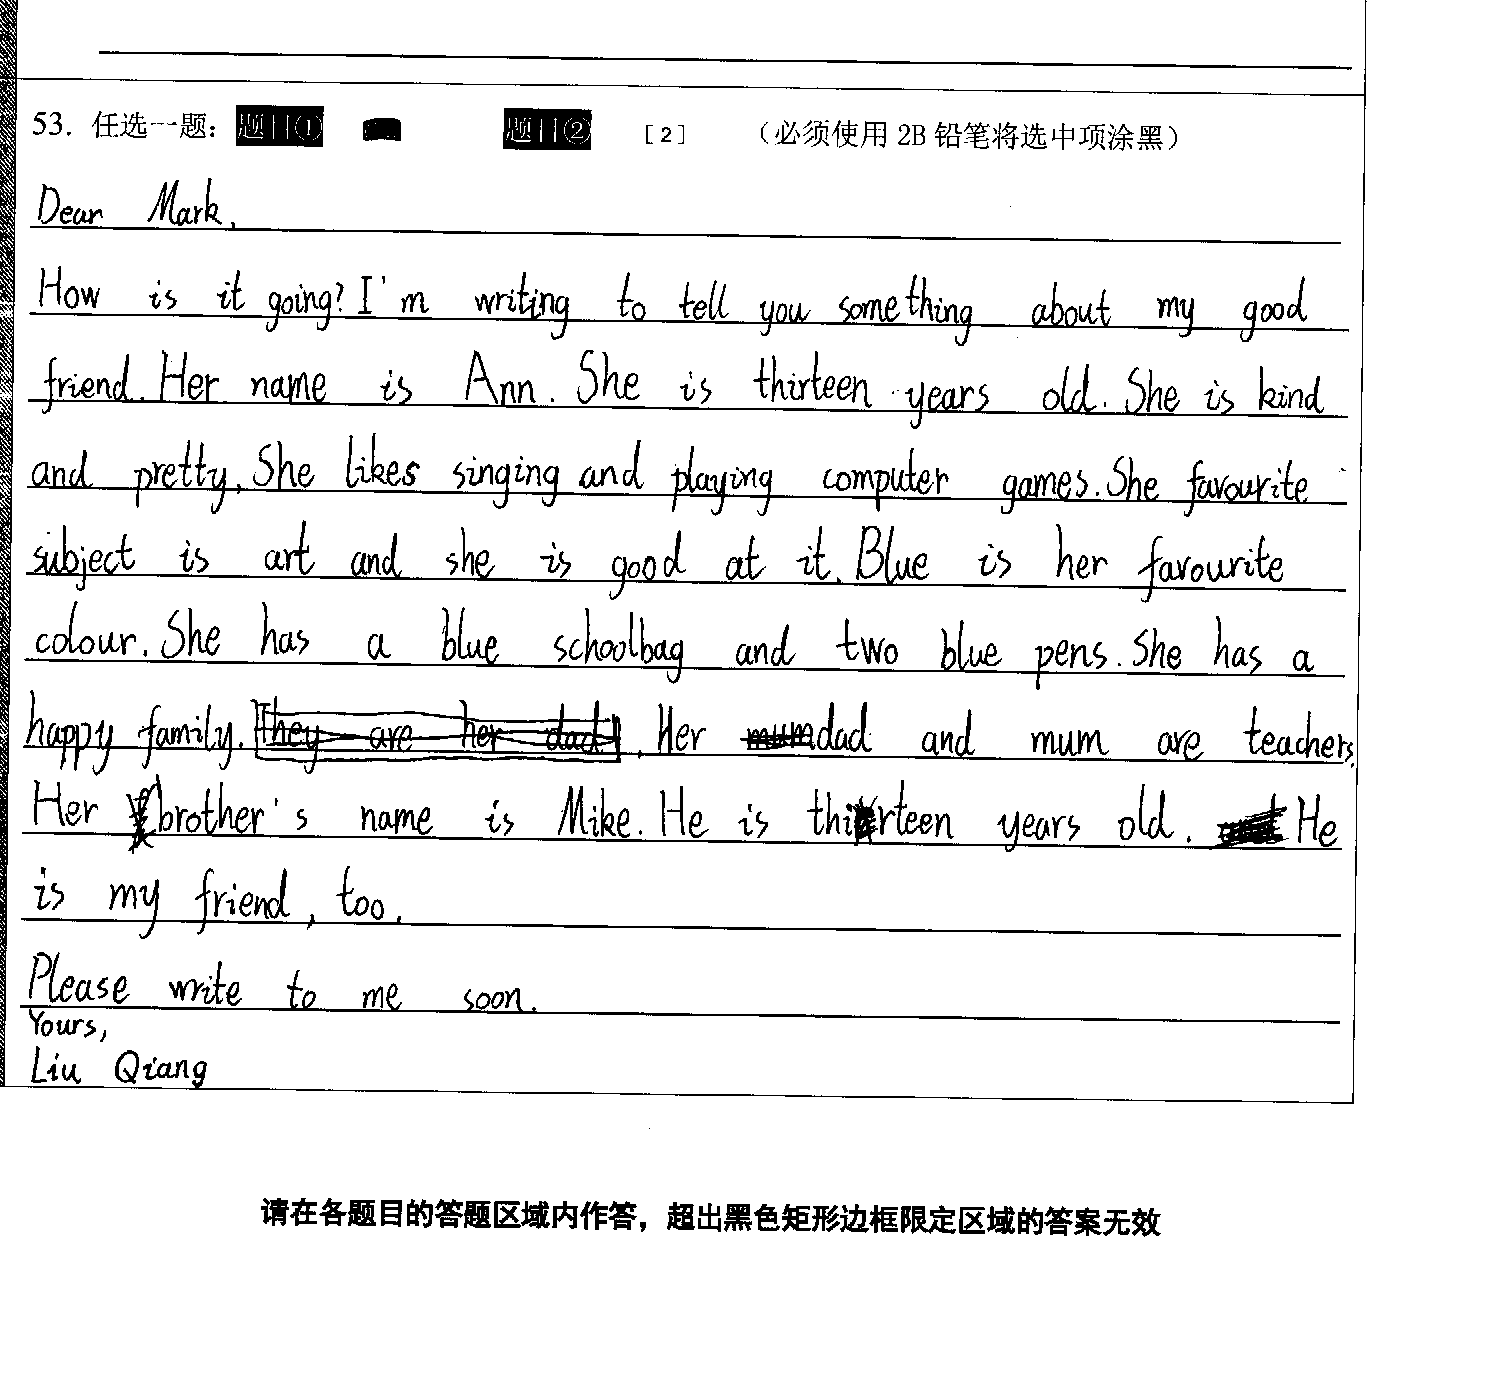 53. 任选一题: 题目① 题目② [2] (必须使用 2B 铅笔将选中项涂黑)
Dear Mark,
How is it going? I'm writing to tell you something about my good
friend. Her name is Ann. She is thirteen years old. She is kind
and pretty. She likes singing and playing computer games. She favourite
subject is art and she is good at it. Blue is her favourite
colour. She has a blue schoolbag and two blue pens. She has a
happy family. They are her dad. Her mum dad and mum are teachers.
Her brother's name is Mike. He is thirteen years old. He
is my friend, too.
Please write to me soon.
Yours,
Liu Qiang
请在各题目的答题区域内作答，超出黑色矩形边框限定区域的答案无效